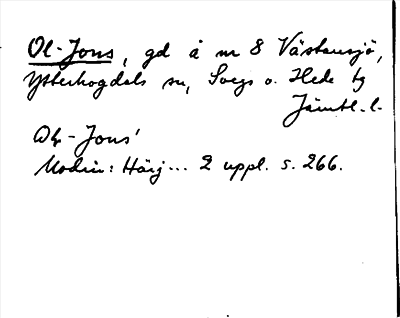 Ol-Jons, gd å nr 8 Västansjö,
Ytterhogdals sn, Svegs o. Hede tg
Jämtl. l.
Ol-Jons'
Modin: Härj... 2 uppl. s. 266.